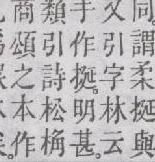 同謂柔挻與
又引字林云
手作挻明甚。
類引詩松桷
商頌之本作